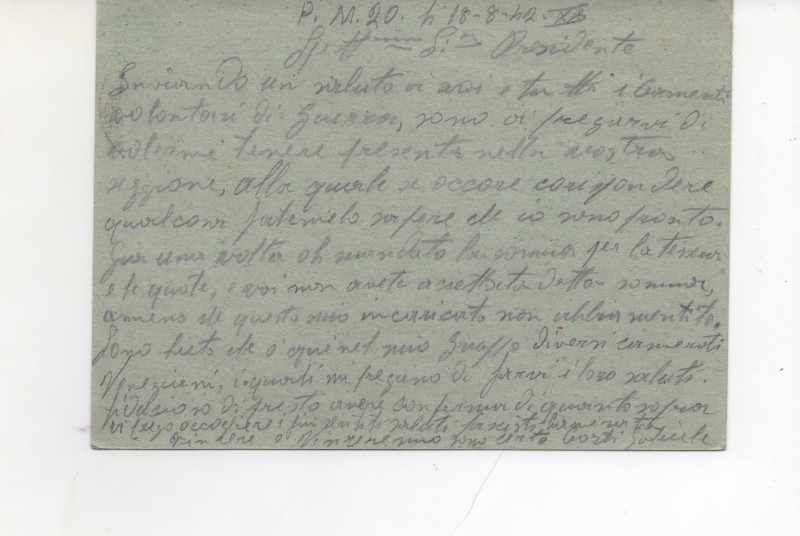 P. M. 20. li 18-8-42-XX
Gett.mo Sig. Presidente
Inviando un saluto a voi e tutti i Camerati
volontari di Guerra, sono a pregarvi di
volermi tenere presente nella vostra
sezzione, alla quale se occore corispondere
qualcosa fatemelo sapere che io sono pronto.
Gia una volta oh mandato la somma per la tessera
e le quote, e voi non avete accettata detta somma,
ameno che questo mio incaricato non abbia mentito.
Sono lieto che o qui nel mio Gruppo diversi camerati
Veneziani, i quali mi pregano di farvi i loro saluti.
Fiducioso di presto avere conferma di quanto sopra
vi prego accogliere i più sentiti saluti fascisti
Vincere e Vinceremo sono certo